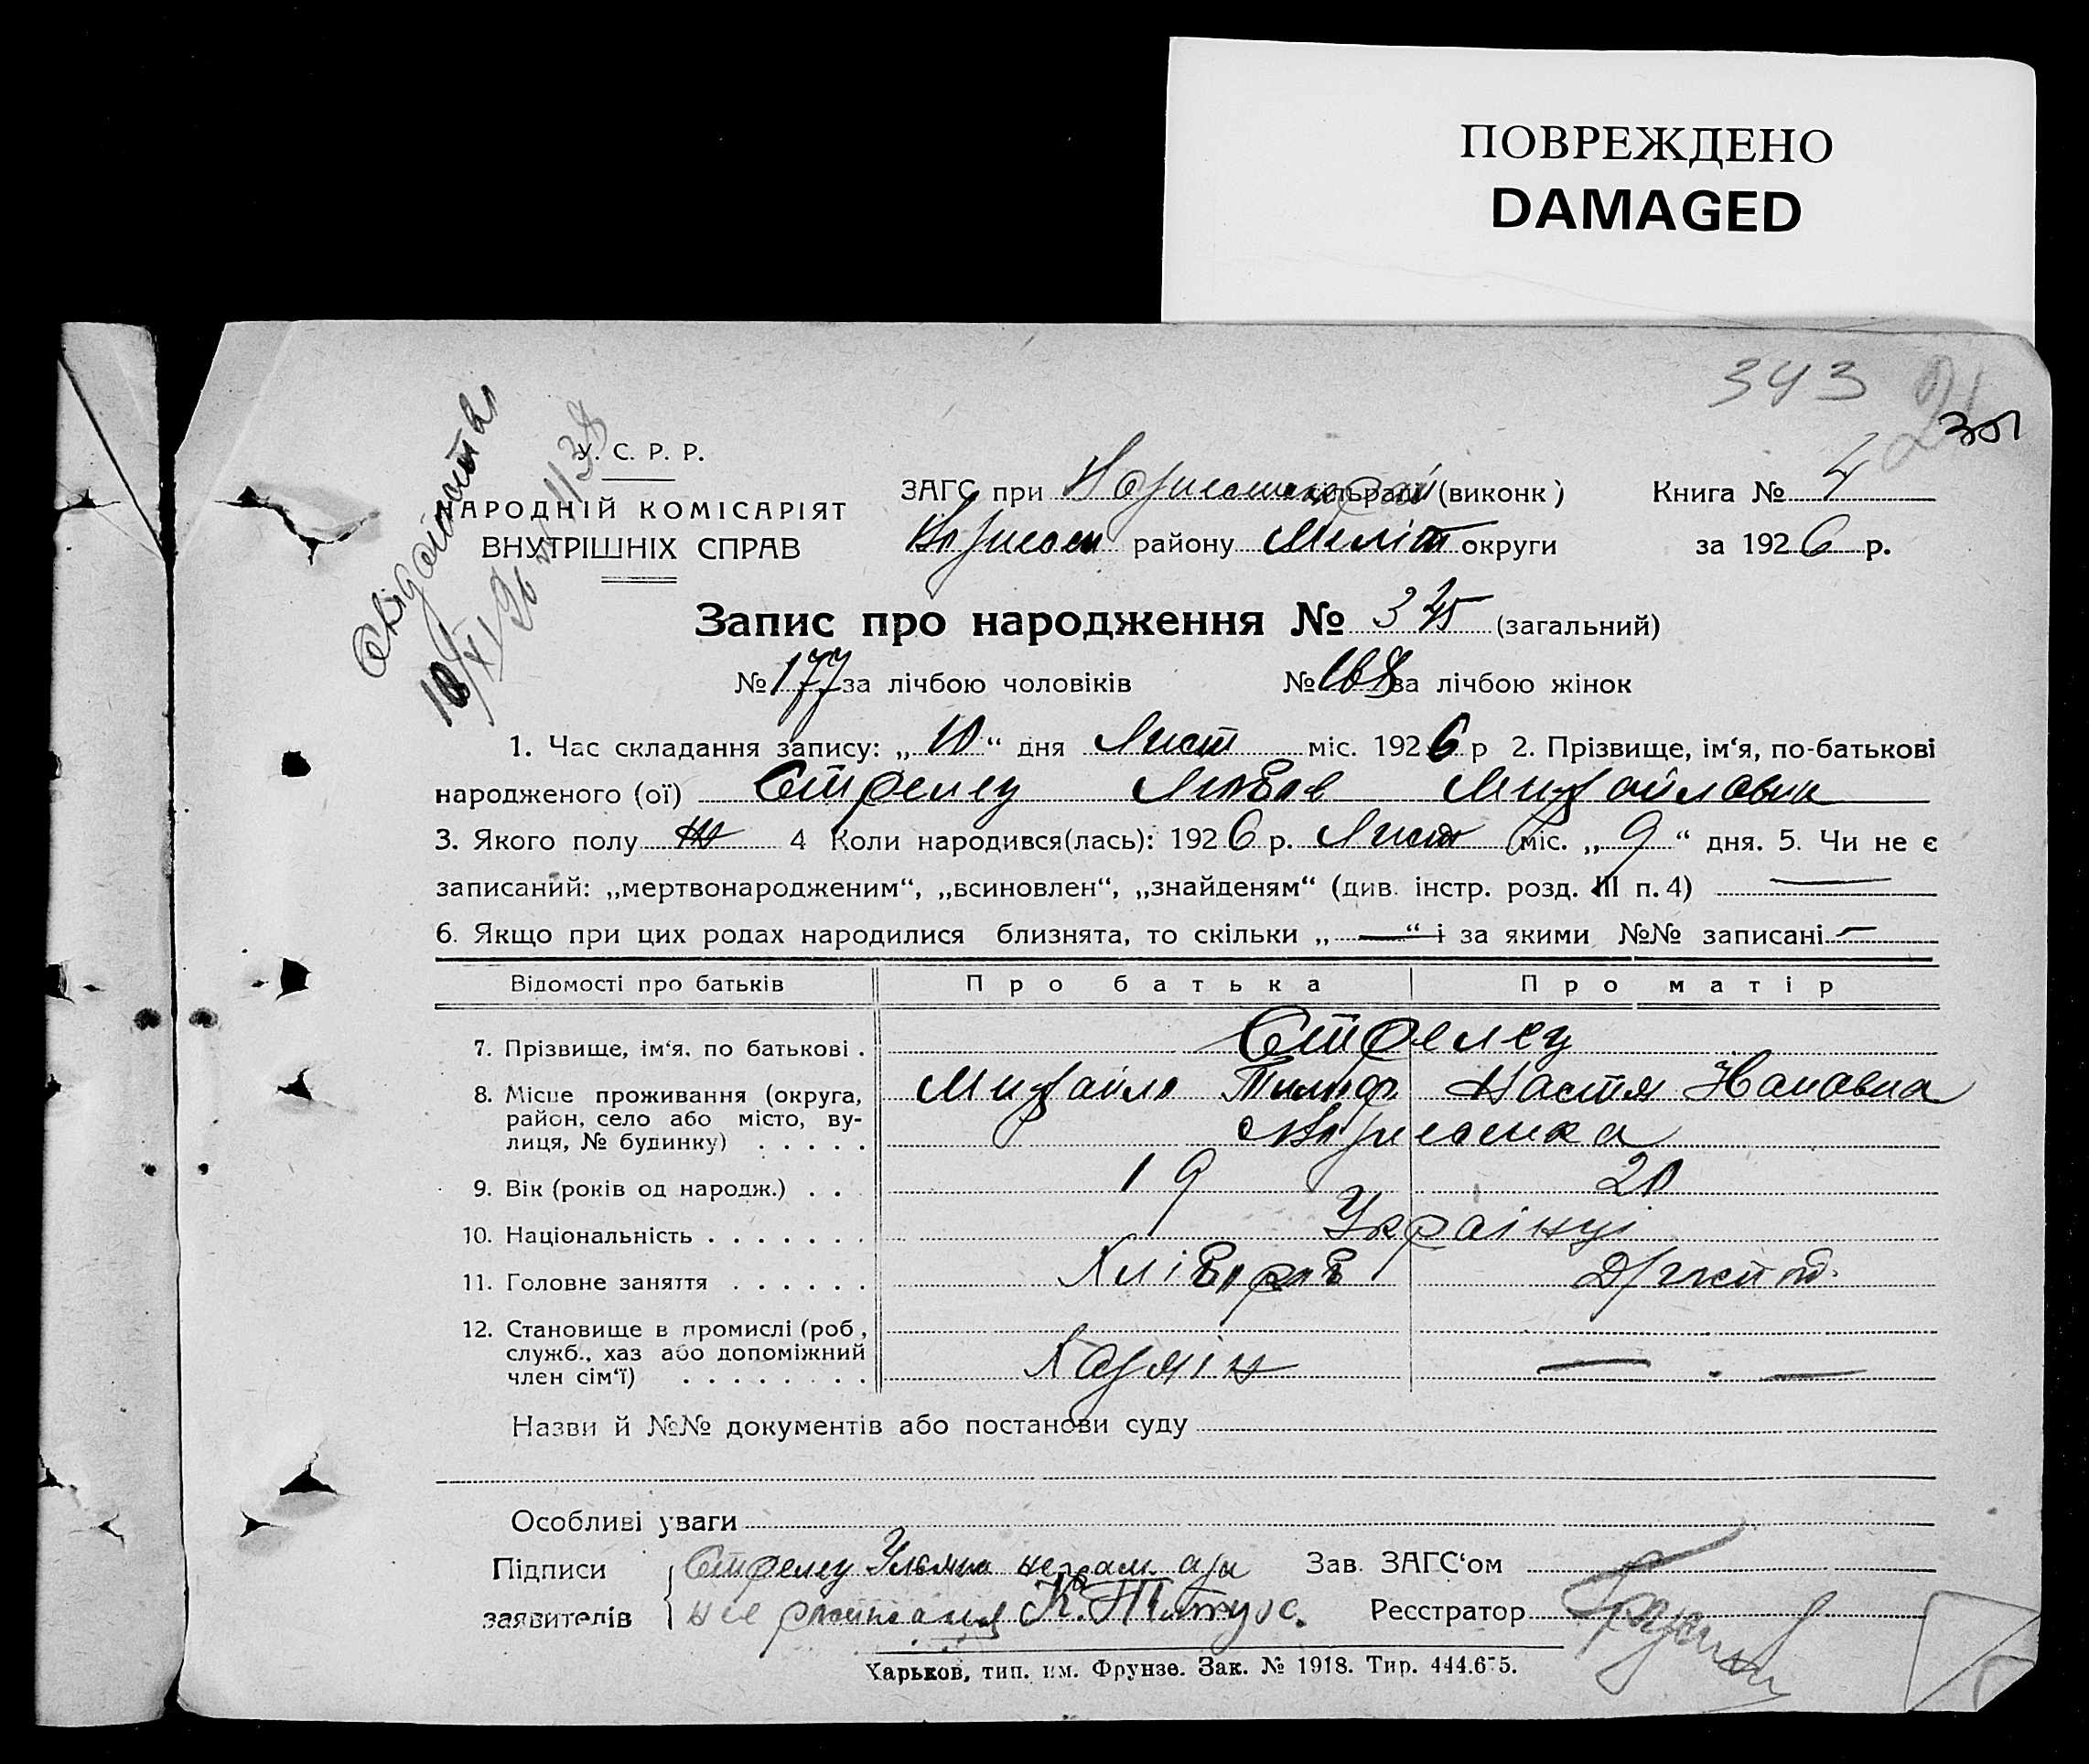 ПОВРЕЖДЕНО
DAMAGED
343
301
У. С. Р. Р.
НАРОДНІЙ КОМІСАРІЯТ
ВНУТРІШНІХ СПРАВ
ЗАГС при (виконк)
Книга № 4
району Меліт округи
за 1926 р.
Запис про народження № 345 (загальний)
№ 177 за лічбою чоловіків № 168 за лічбою жінок
1. Час складання запису: „10“ дня Лист міс. 1926 р 2. Прізвище, ім‘я, по-батькові
народженого (ої) Стрелец Любов Михайловна
3. Якого полу ж 4 Коли народився(лась): 1926 р. Лист міс. „9“ дня. 5. Чи не є
записаний: „мертвонародженим“, „всиновлен“, „знайденям“ (див. інстр. розд. III п. 4) —
6. Якщо при цих родах народилися близнята, то скільки „—“ і за якими №№ записані —
Відомості про батьків Про батька Про матір
7. Прізвище, ім‘я, по батькові . Стрелец
8. Місце проживання (округа, Михайло Тимоф Настя
район, село або місто, ву-
лиця, № будинку) . . . . .
9. Вік (років од народж.) . . 19 20
10. Національність . . . . . . . Українці
11. Головне заняття . . . . . . Хлібороб
12. Становище в промислі (роб,
служб., хаз або допоміжний Хазяін — . —
член сім‘ї) . . . . . . . .
Назви й №№ документів або постанови суду
Особливі уваги
Підписи Стрелец неграм. а за Зав. ЗАГС‘ом
заявителів К. Реєстратор
Харьков, тип. им. Фрунзе. Зак. № 1918. Тир. 444.675.